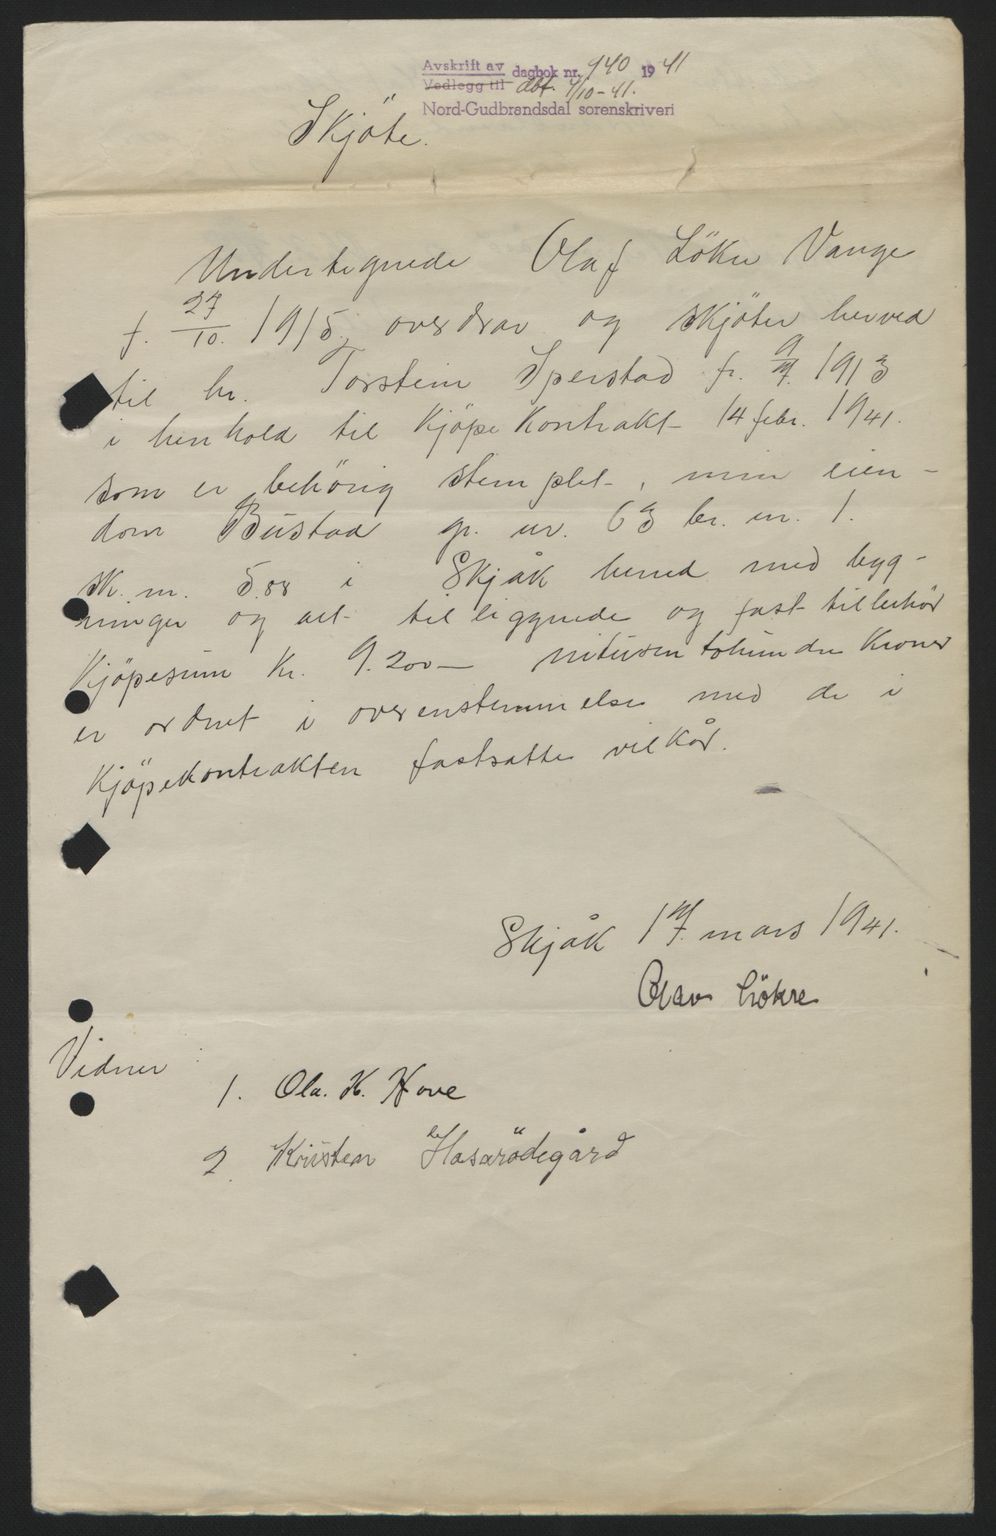 Avskrift av dagbok nr. 940 1941
Vedlegg til dbf. 4/10-41.
Nord-Gudbrandsdal sorenskriveri
Skjöte.
Undertegnede Olaf Lökre Vange
f. 27/10. 1915, overdrar og skjöter herved
til hr. Torstein Sperstad f. 9/7. 1913
i henhold til Kjöpe Kontrakt 14 febr. 1941.
som er behörig stemplet, min eien-
dom Bustad gr. nr. 63 br. nr. 1.
sk. m. 5.88 i Skjåk herred med byg-
ninger og alt tilliggende og fast tilbehör
Kjöpesum Kr. 9.200- nitusen tohundre Kroner
er ordnet i overenstemmelse med de i
Kjöpekontrakten fastsatte vilkår.
Skjåk 17. mars 1941.
Olav Lökre
Vidner
1. Ola. K. Hove
2. Kristen Hasarödegård